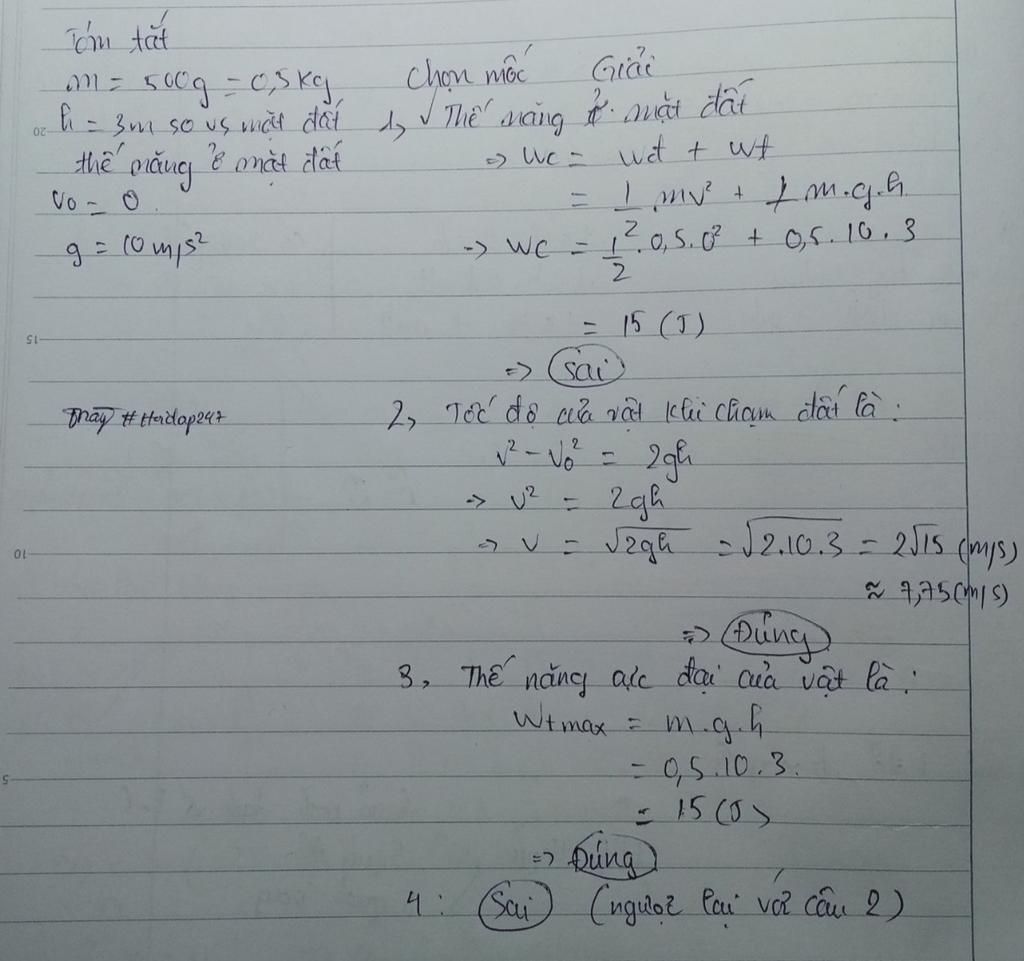 Tóm tắt
m = 500g = 0,5kg
h = 3m so vs mặt đất
thế năng ở mặt đất
v₀ = 0.
g = 10 m/s²
Giải
Chọn mốc
1, √ Thế năng ở mặt đất
=> Wc = Wđ + Wt
= 1/2 mv² + m.g.h
=> Wc = 1/2.0,5.0² + 0,5.10.3
= 15 (J)
=> Sai
thay #Hoidap247
2, Tốc độ của vật khi chạm đất là:
v² - v₀² = 2gh
=> v² = 2gh
=> v = √2gh = √2.10.3 = 2√15 (m/s)
≈ 7,75(m/s)
=> Đúng
3, Thế năng cực đại của vật là:
Wtmax = m.g.h
= 0,5.10.3.
= 15 (J)
=> Đúng
4: Sai (ngược lại với câu 2)
20
15
10
5